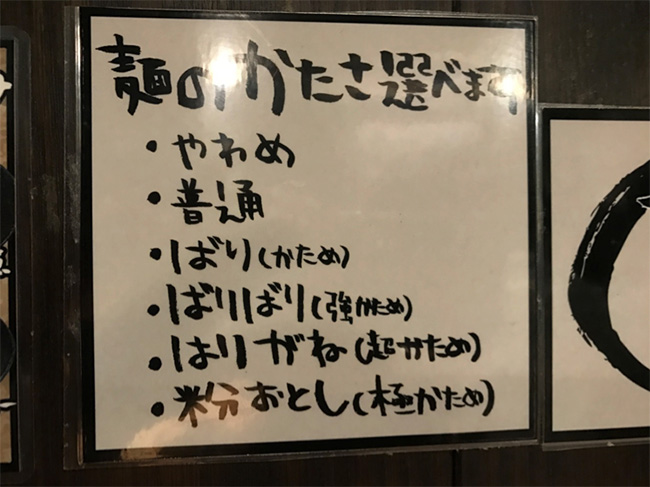 麺のかたさ選べます
・やわめ
・普通
・ばり(かため)
・ばりばり(強かため)
・はりがね(超かため)
・粉おとし(極かため)